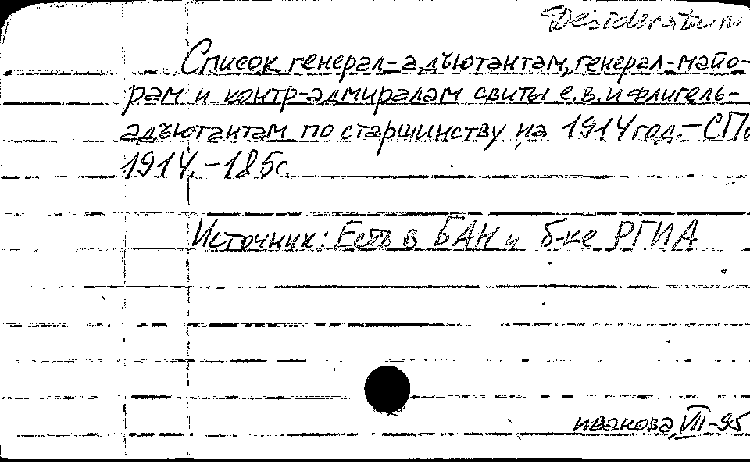 Desideratum
Список генерал-адъютантам, генерал-майо-
рам и контр-адмиралам свиты е.в. и флигель-
адъютантам по старшинству на 1914 год. - СПб
1914. - 185с
Источник: Есть в БАН и б-ке РГИА
иванова, VII-95